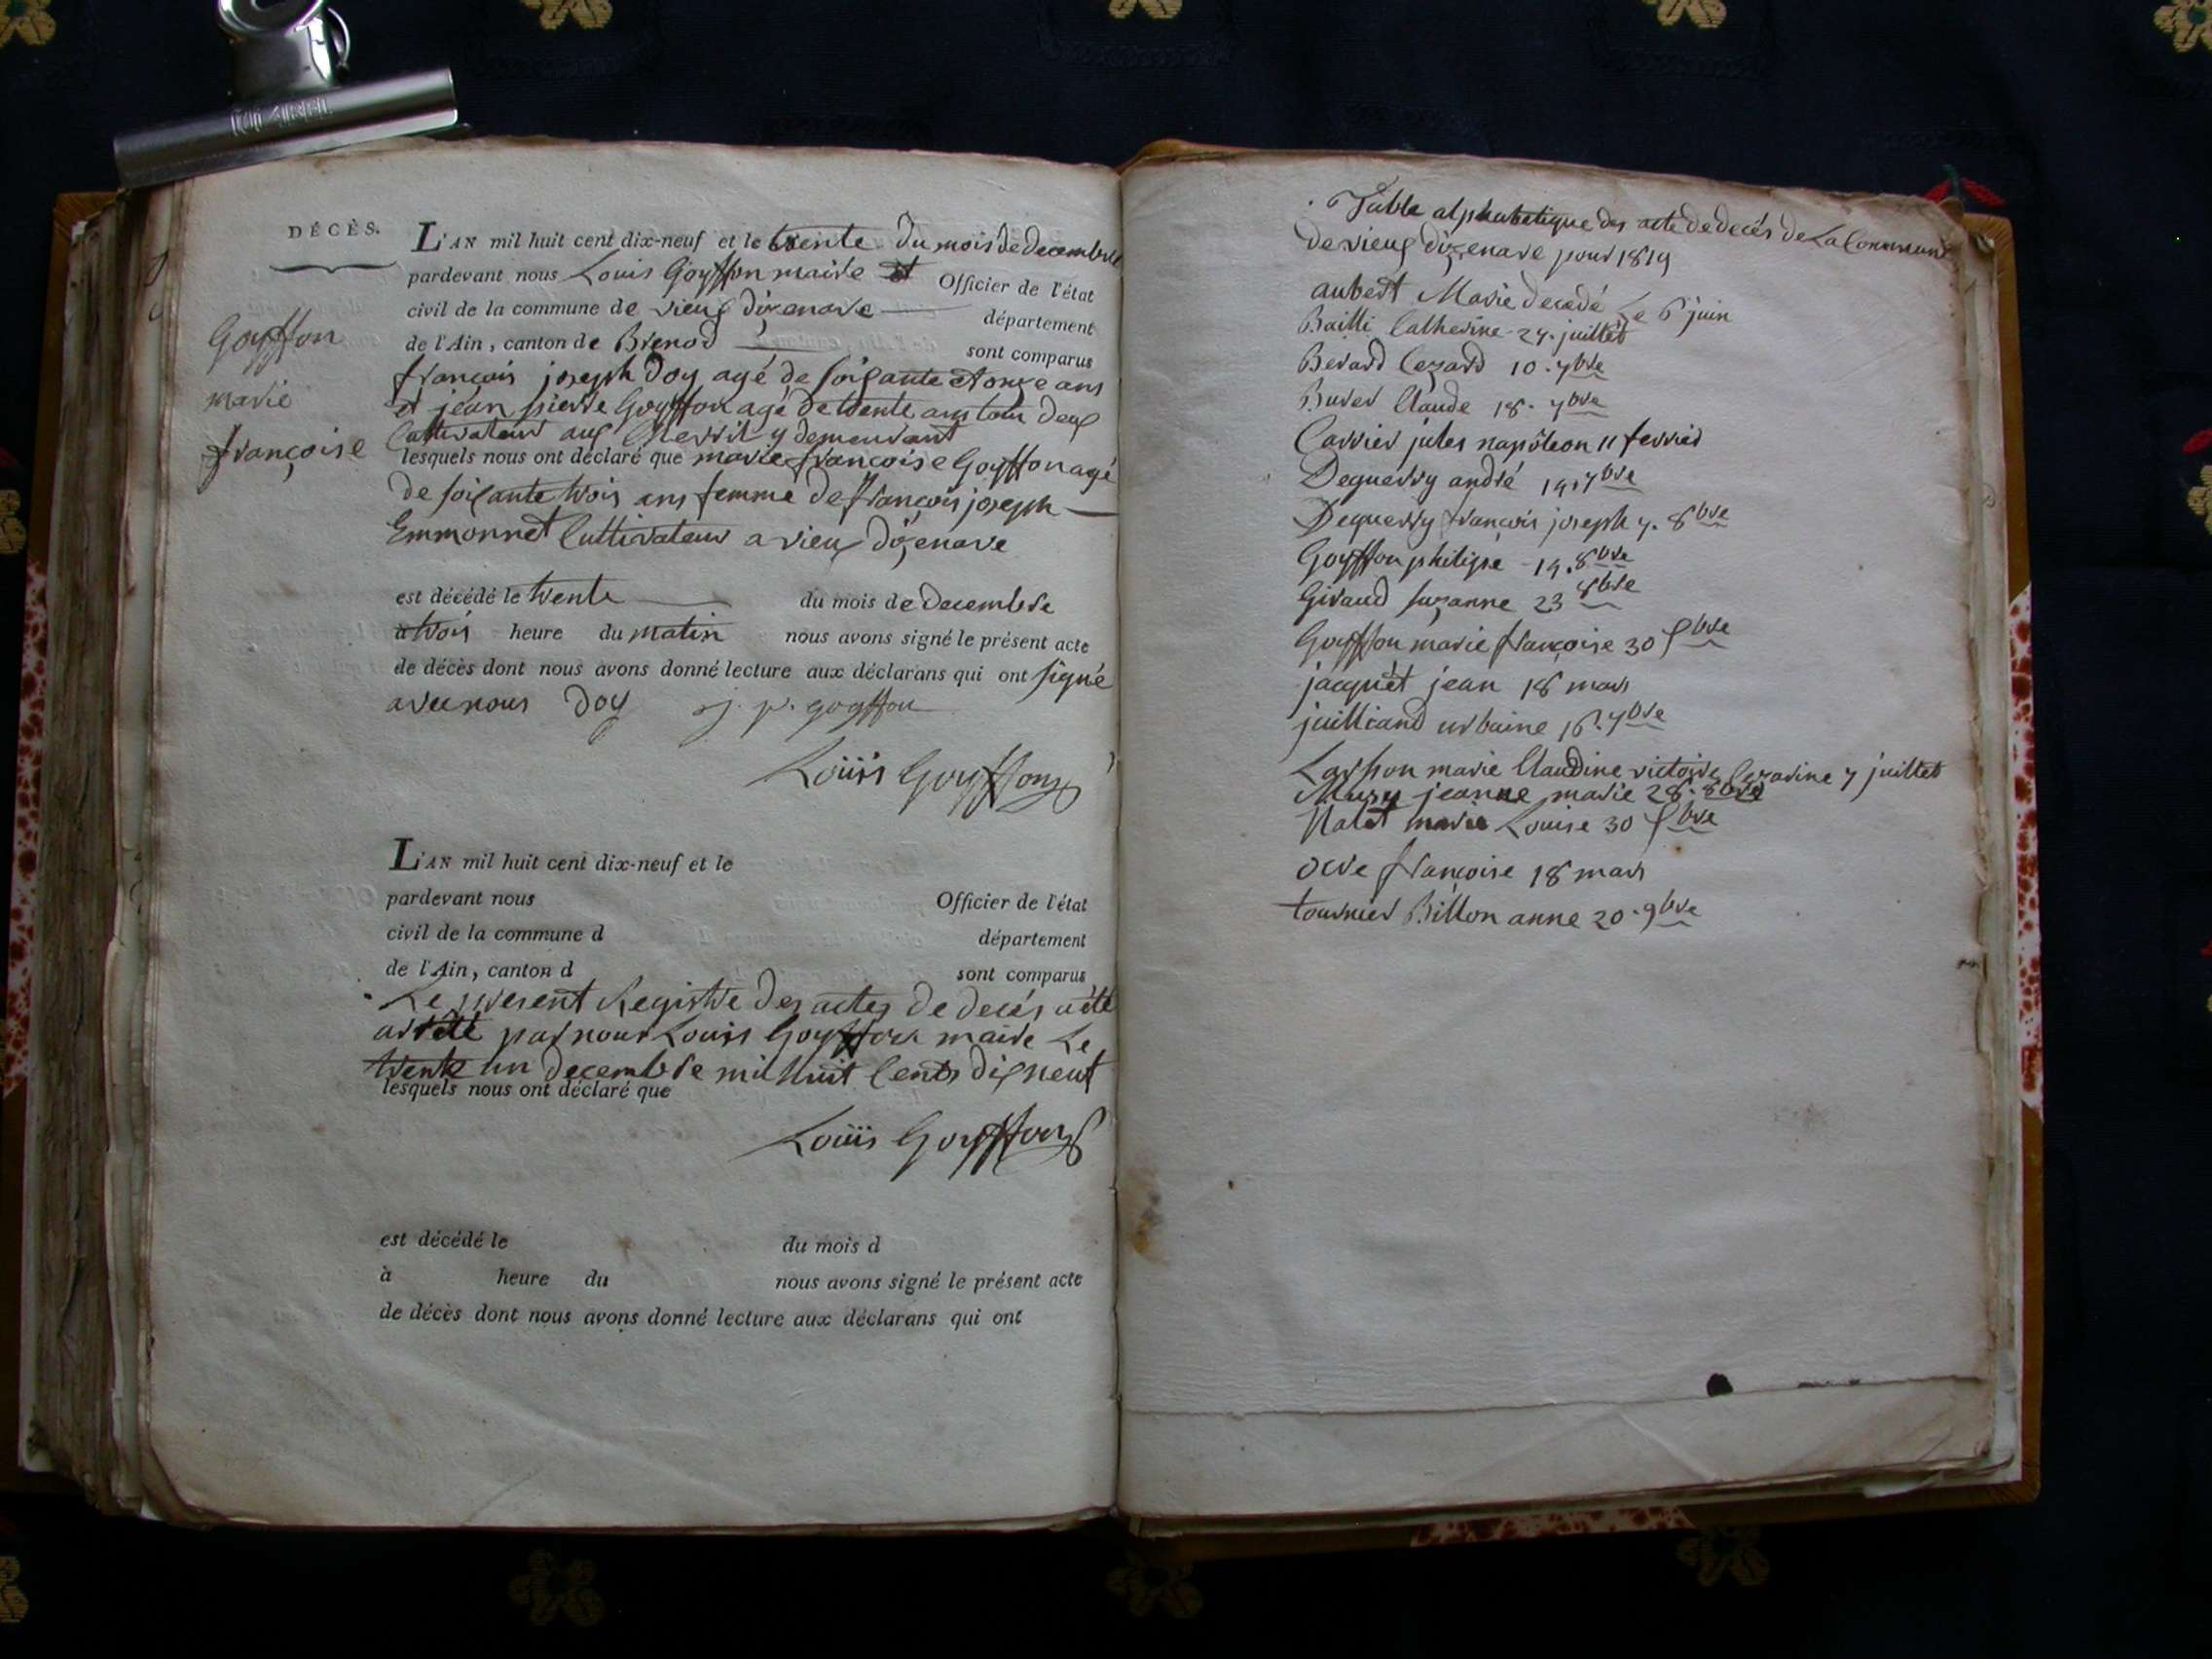 DÉCÈS.
Goyffon
marie
françoise
L'AN mil huit cent dix-neuf et le trente du mois de decembre
pardevant nous Louis Goyffon maire et Officier de l'état
civil de la commune de vieux dizenave département
de l'Ain, canton de Brenod sont comparus
françois joseph Doy agé de soixante et onze ans
et jean pierre Goyffon agé de trente ans tous deux
Cultivateurs aux y demeurant
lesquels nous ont déclaré que marie françoise Goyffon agé
de soixante trois ans femme de françois joseph
Emmonnet Cultivateur a vieux dizenave
est décédé le trente du mois de decembre
à trois heure du matin nous avons signé le présent acte
de décès dont nous avons donné lecture aux déclarans qui ont signé
avec nous Doy j. p. goyffon
Louis Goyffon
L'AN mil huit cent dix-neuf et le
pardevant nous Officier de l'état
civil de la commune d département
de l'Ain, canton d sont comparus
Le present Registre des actes de decés a été
arrété par nous Louis Goyffon maire Le
trente un decembre mil huit Cents dixneuf
lesquels nous ont déclaré que
Louis Goyffon
est décédé le du mois d
à heure du nous avons signé le présent acte
de décès dont nous avons donné lecture aux déclarans qui ont
Table alphabetique des acte de decés de La Commune
de vieux dizenave pour 1819
aubert Marie decedé Le 6 juin
Bailli Catherine 24. juillet
Berard Cezard 10. 7bre
Buret Claude 18. 7bre
Carrier jules napôleon 11 fevrier
Deguerry andré 14. 7bre
Deguerry françois joseph 7. 8bre
Goyffon philipe 14. 8bre
Giraud suzanne 23 8bre
Goyffon marie françoise 30 Xbre
jacquet jean 18 mars
juilliand urbaine 16. 7bre
marie Claudine victoire Cezarine 7 juillet
Muzy jeanne marie 28. 8bre
Nalet marie Louise 30 Xbre
françoise 18 mars
tournier Billon anne 20. 9bre